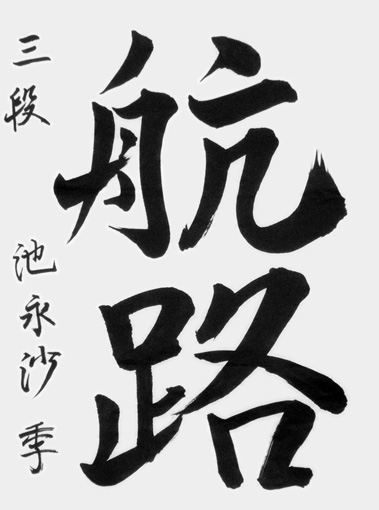 航路
三段 池永沙季